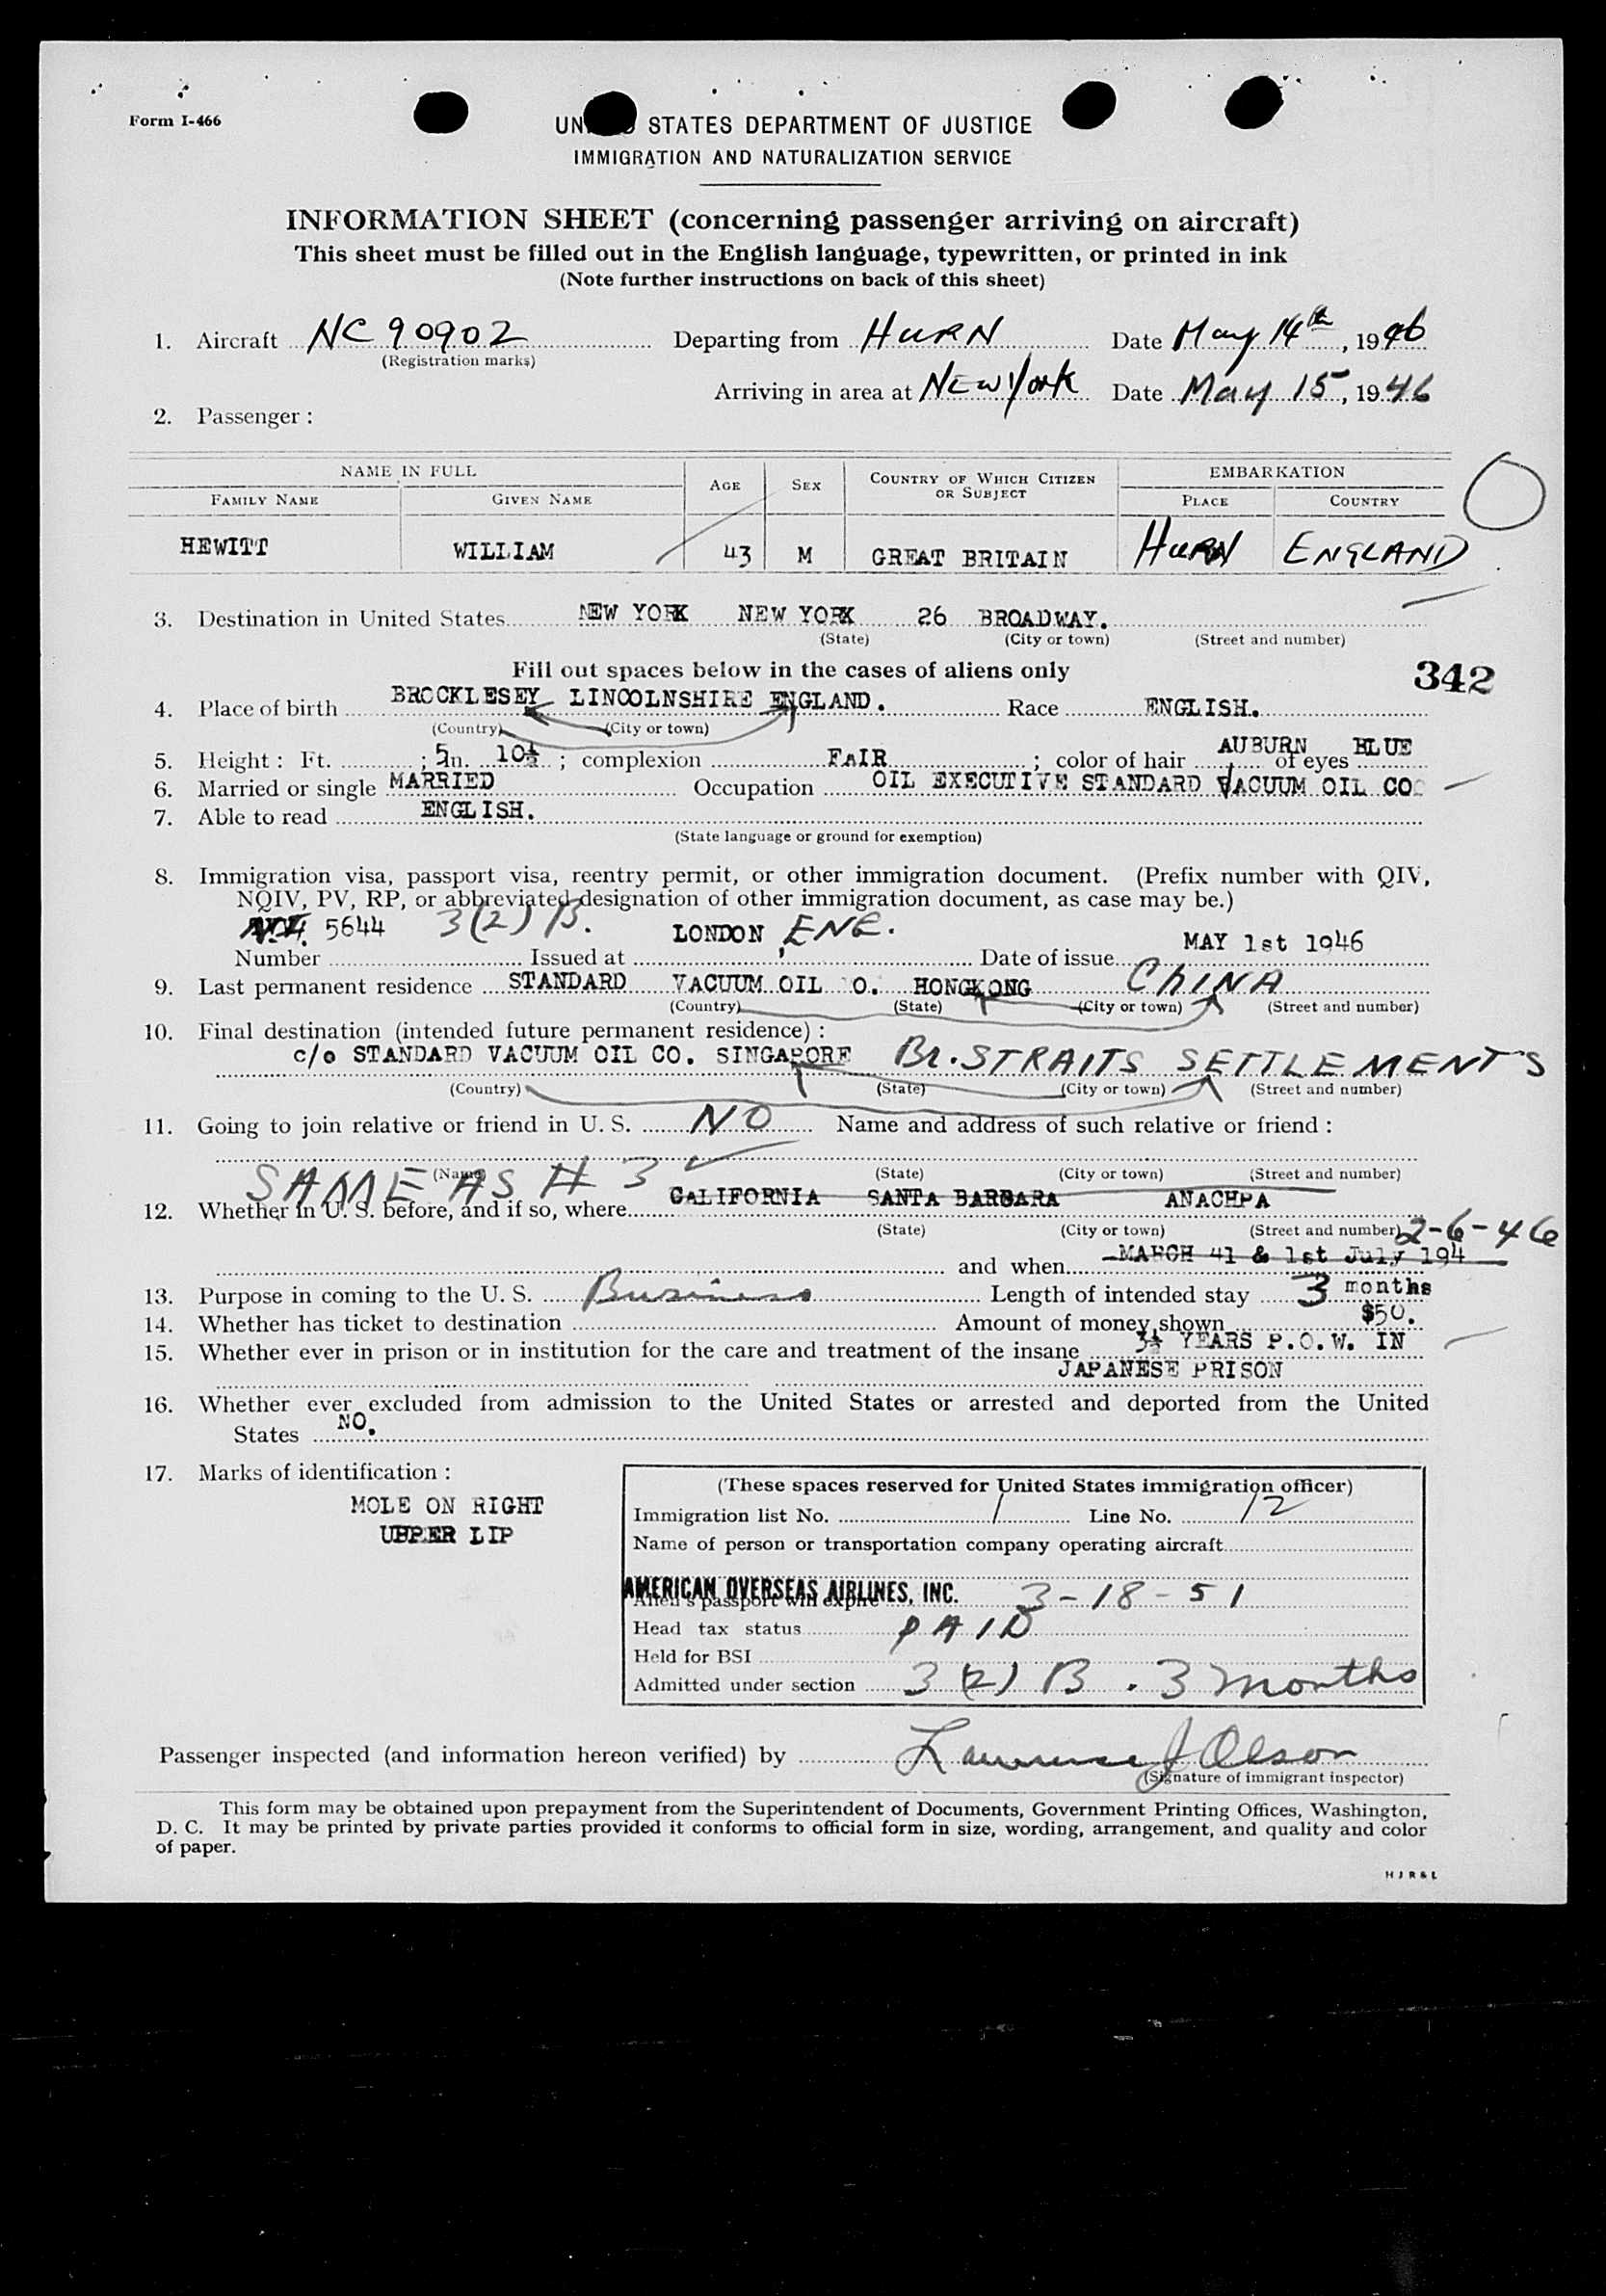 Form I-466
UN STATES DEPARTMENT OF JUSTICE
IMMIGRATION AND NATURALIZATION SERVICE
INFORMATION SHEET (concerning passenger arriving on aircraft)
This sheet must be filled out in the English language, typewritten, or printed in ink
(Note further instructions on back of this sheet)
1. Aircraft NC 90902 Departing from HURN Date May 14th, 1946
(Registration marks)
Arriving in area at New York Date May 15, 1946
2. Passenger :
NAME IN FULL AGE SEX COUNTRY OF WHICH CITIZEN OR SUBJECT EMBARKATION
FAMILY NAME GIVEN NAME PLACE COUNTRY
HEWITT WILLIAM 43 M GREAT BRITAIN HURN ENGLAND
3. Destination in United States NEW YORK NEW YORK 26 BROADWAY.
(State) (City or town) (Street and number)
Fill out spaces below in the cases of aliens only 342
4. Place of birth BROCKLESEY LINCOLNSHIRE ENGLAND. Race ENGLISH.
(Country) (City or town)
5. Height : Ft. 5 ; In. 10½ ; complexion FAIR ; color of hair AUBURN of eyes BLUE
6. Married or single MARRIED Occupation OIL EXECUTIVE STANDARD VACUUM OIL CO
7. Able to read ENGLISH.
(State language or ground for exemption)
8. Immigration visa, passport visa, reentry permit, or other immigration document. (Prefix number with QIV,
NQIV, PV, RP, or abbreviated designation of other immigration document, as case may be.)
5644 3(2) B. LONDON, ENG. MAY 1st 1946
Number Issued at Date of issue
9. Last permanent residence STANDARD VACUUM OIL O. HONGKONG CHINA
(Country) (State) (City or town) (Street and number)
10. Final destination (intended future permanent residence) :
c/o STANDARD VACUUM OIL CO. SINGAPORE Br. STRAITS SETTLEMENTS
(Country) (State) (City or town) (Street and number)
11. Going to join relative or friend in U. S. NO Name and address of such relative or friend :
SAME AS # 3
(Name) (State) (City or town) (Street and number)
12. Whether in U. S. before, and if so, where CALIFORNIA SANTA BARBARA ANACHPA
(State) (City or town) (Street and number) 2-6-46
and when MARCH 41 & 1st July 194
13. Purpose in coming to the U. S. Business Length of intended stay 3 months
14. Whether has ticket to destination Amount of money shown $50.
15. Whether ever in prison or in institution for the care and treatment of the insane 3½ YEARS P.O.W. IN
JAPANESE PRISON
16. Whether ever excluded from admission to the United States or arrested and deported from the United
States NO.
17. Marks of identification :
MOLE ON RIGHT
UPPER LIP
(These spaces reserved for United States immigration officer)
Immigration list No. 1 Line No. 12
Name of person or transportation company operating aircraft
AMERICAN OVERSEAS AIRLINES, INC.
Alien's passport will expire 3-18-51
Head tax status PAID
Held for BSI
Admitted under section 3 (2) B . 3 months
Passenger inspected (and information hereon verified) by Lawrence J Olson
(Signature of immigrant inspector)
This form may be obtained upon prepayment from the Superintendent of Documents, Government Printing Offices, Washington,
D. C. It may be printed by private parties provided it conforms to official form in size, wording, arrangement, and quality and color
of paper.
H J R & L